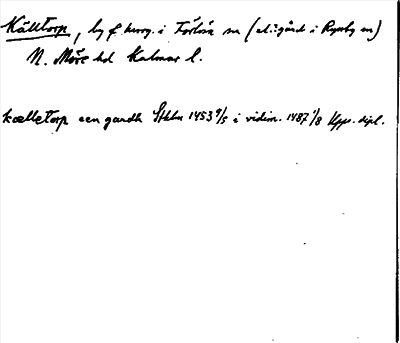 Källtorp, by f herrg. i Förlösa sn (el. gård i Ryssby sn)
N. Möre hd Kalmar l.
kælletorp een gardh Sthlm 1453 9/5 i vidim. 1487 1/8 Upps. dipl.